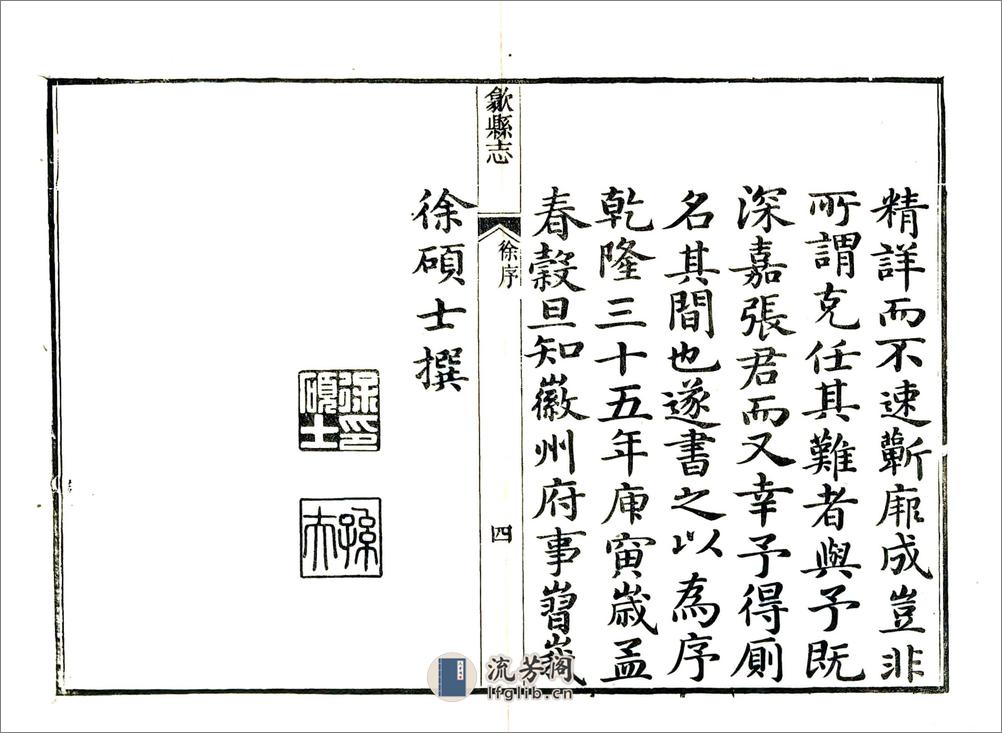 精詳而不速蘄底成豈非
所謂克任其難者與予既
深嘉張君而又幸予得厠
名其間也遂書之以為序
乾隆三十五年庚寅歲孟
春穀旦知徽州府事嶍峩
歙縣志
徐序
四
徐碩士撰
徐印碩士
流芳阁
lfglib.cn